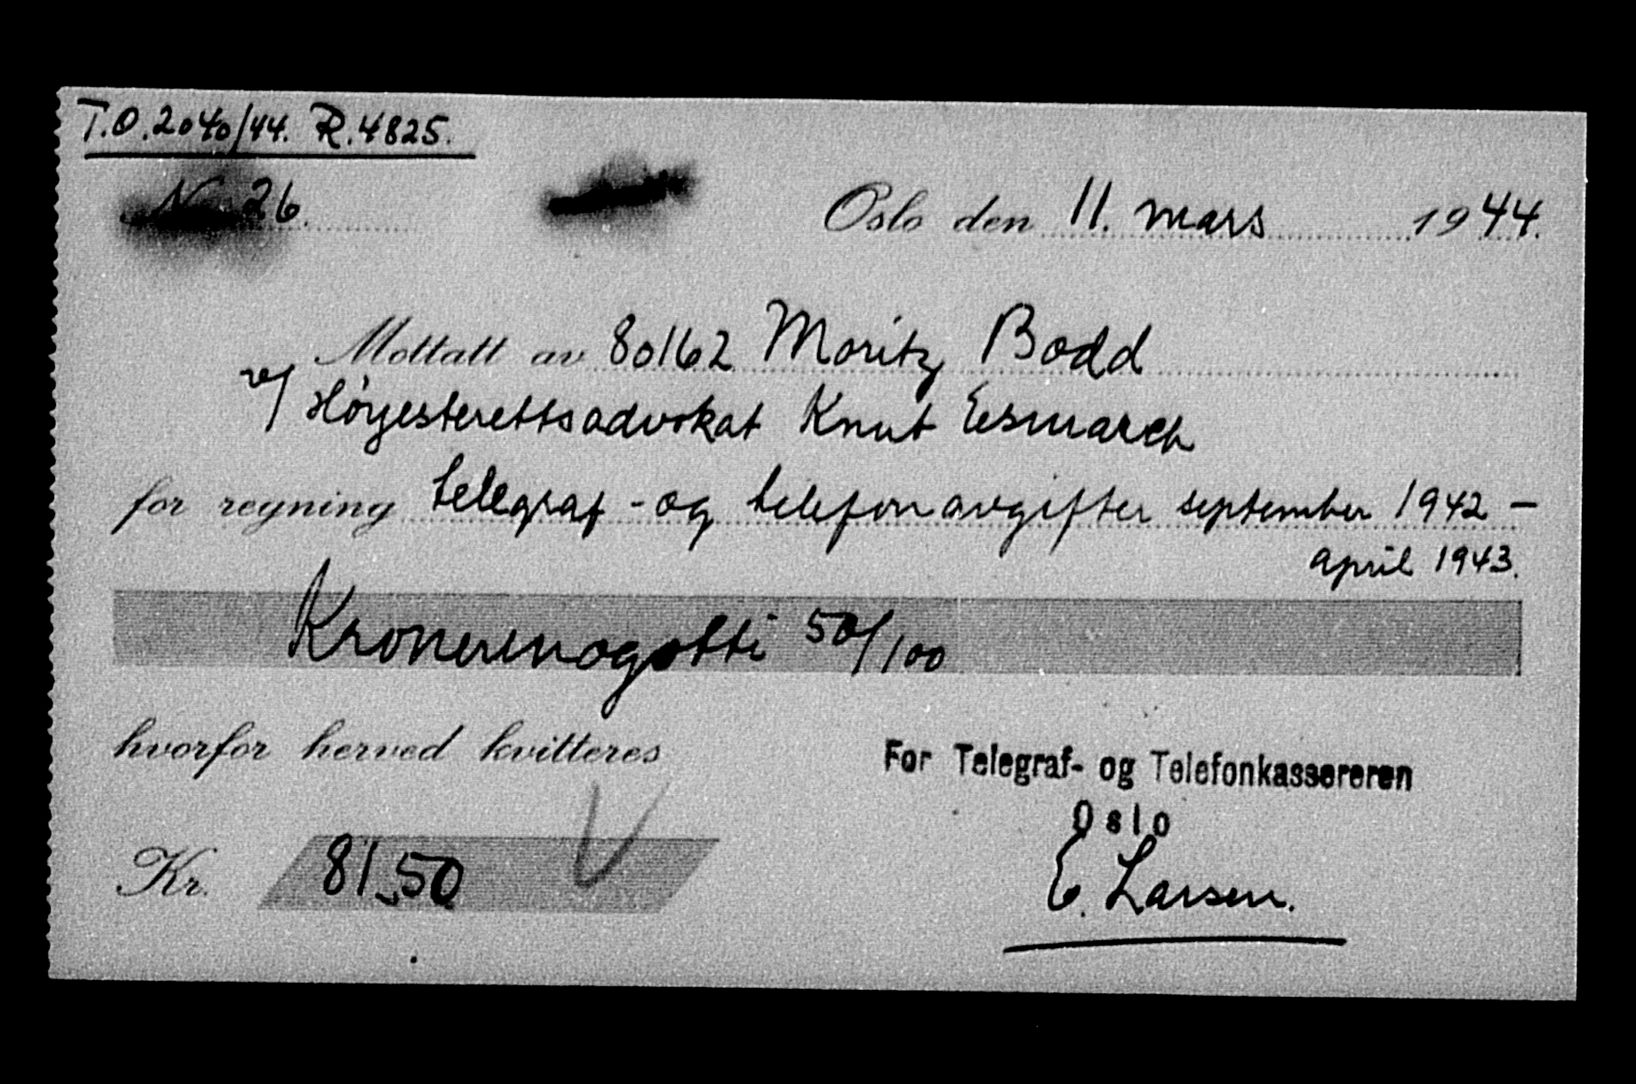 T.O.2040/44. R.4825.
No 26.
Oslo den 11. mars 1944.
Mottatt av 80162 Moritz Bodd
v/ Høyesterettsadvokat Knut Esmarch
for regning telegraf- og telefonavgifter september 1942 –
april 1943.
Kronerenogotti 50/100
hvorfor herved kvitteres
For Telegraf- og Telefonkassereren
Oslo
Kr. 81,50
E. Larsen.